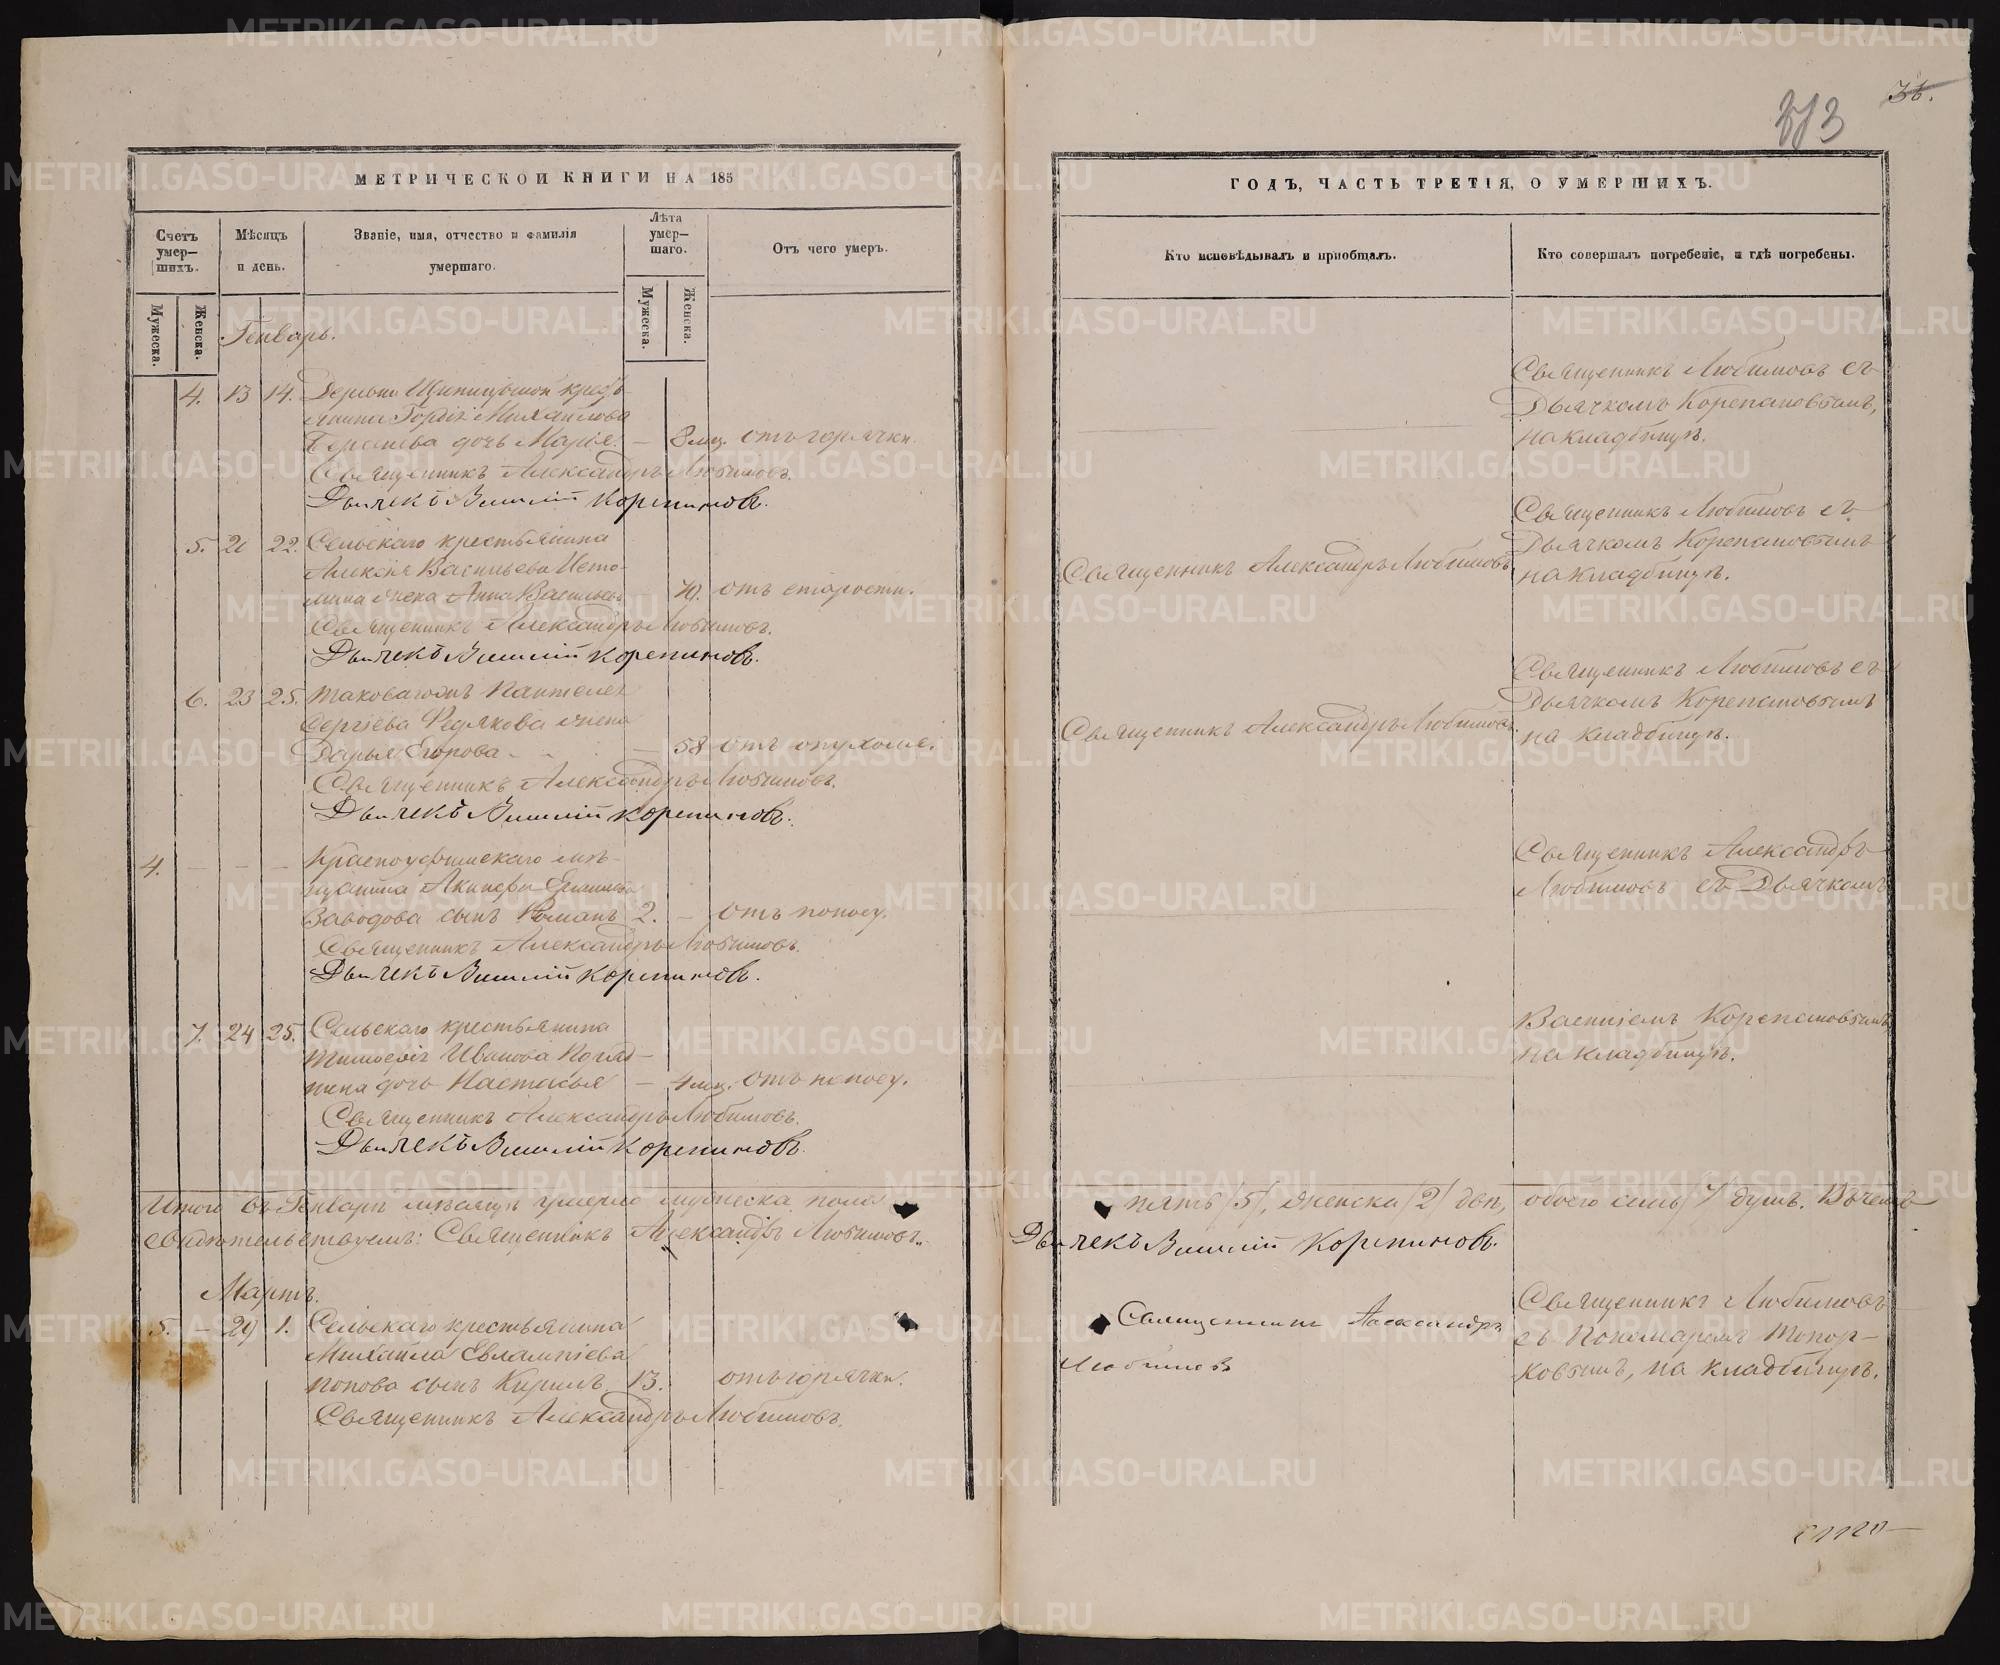 36.
МЕТРИЧЕСКОЙ КНИГИ НА 185
Счетъ умер–шихъ.
Мѣсяцъ и день.
Званіе, имя, отчество и фамилія умершаго.
Лѣта умер–шаго.
Отъ чего умеръ.
Мужеска.
Женска.
Мужеска.
Женска.
Генварь.
4. 13 14. Деревни крестъ-
янина Гордія Михайлова
дочь Марія. — 8 мц. отъ горячки.
Священникъ Александръ Любимовъ.
Дьячекъ Василій Корепановъ.
5. 20 22. Сельскаго крестьянина
Алексія Васильева Исто-
мина жена Анна Васильев 70. отъ старости.
Священникъ Александръ Любимовъ.
Дьячекъ Василій Корепановъ.
6. 23 25. Таковагожъ Пантелея
Сергіева Редякова жена
Дарья Егорова - — 58 отъ опухоли.
Священникъ Александръ Любимовъ.
Дьячекъ Василій Корепановъ.
4. — — — Красноуфимскаго мѣ-
щанина
Заводова сынъ Романъ 2. — отъ поносу.
Священникъ Александръ Любимовъ.
Дьячекъ Василій Корепановъ.
7. 24 25. Сельскаго крестьянина
Тимоѳея Иванова
дочь Настасья — 4 мц. отъ поносу.
Священникъ Александръ Любимовъ.
Дьячекъ Василій Корепановъ.
Итого въ Генварѣ мѣсяцѣ умерло мужеска пола
свидѣтельствуемъ: Священникъ Александръ Любимовъ.
Мартъ.
5. — 29 1. Сельскаго крестьянина
Михаила Евлампіева
Попова сынъ Кирилъ 13. отъ горячки.
Священникъ Александръ Любимовъ.
ГОДЪ, ЧАСТЬ ТРЕТІЯ, О УМЕРШИХЪ.
Кто исповѣдывалъ и пріобщалъ.
Кто совершалъ погребеніе, и гдѣ погребены.
Священникъ Любимовъ съ
Дьячкомъ Корепановымъ,
на кладбищѣ.
Священникъ Любимовъ съ
Дьячкомъ Корепановымъ
Священникъ Александръ Любимовъ на кладбищѣ.
Священникъ Любимовъ съ
Дьячкомъ Корепановымъ
Священникъ Александръ Любимовъ. на кладбищѣ.
Священникъ Александръ
Любимовъ съ Дьячкомъ
Василіемъ Корепановымъ
на кладбищѣ.
пять /5/, женска /2/ двѣ, обоего семь /7/ душъ. Въ чемъ
Дьячекъ Василій Корепановъ.
Священникъ Александръ
Любимовъ
Священникъ Любимовъ
съ Пономаремъ Топор-
ковымъ, на кладбищѣ.
METRIKI.GASO-URAL.RU